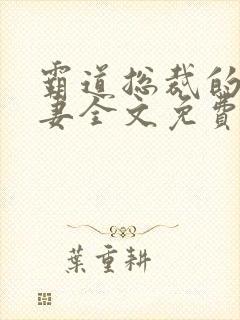 霸道总裁的
妻全文免費
葉重耕